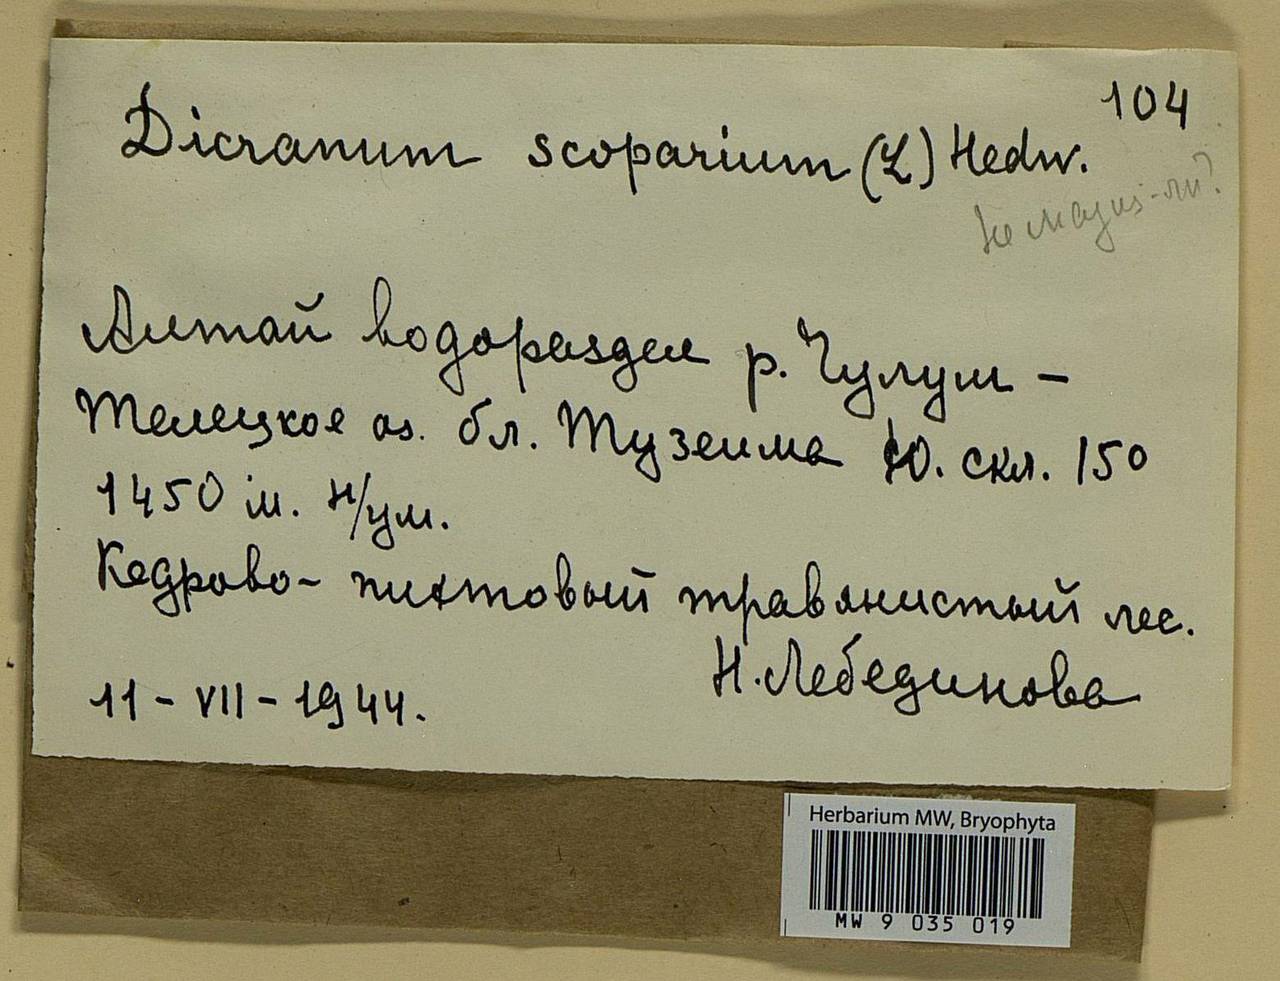 104
Dicranum scoparium (L) Hedw.
не majus-ли?
Алтай водораздел р. Чулуш -
Телецкое оз. бл. Тузеима Ю. скл. 150
1450 м. н/ум.
Кедрово- пихтовый травянистый лес.
Н. Лебединова
11 - VII - 1944.
Herbarium MW, Bryophyta
MW 9 035 019